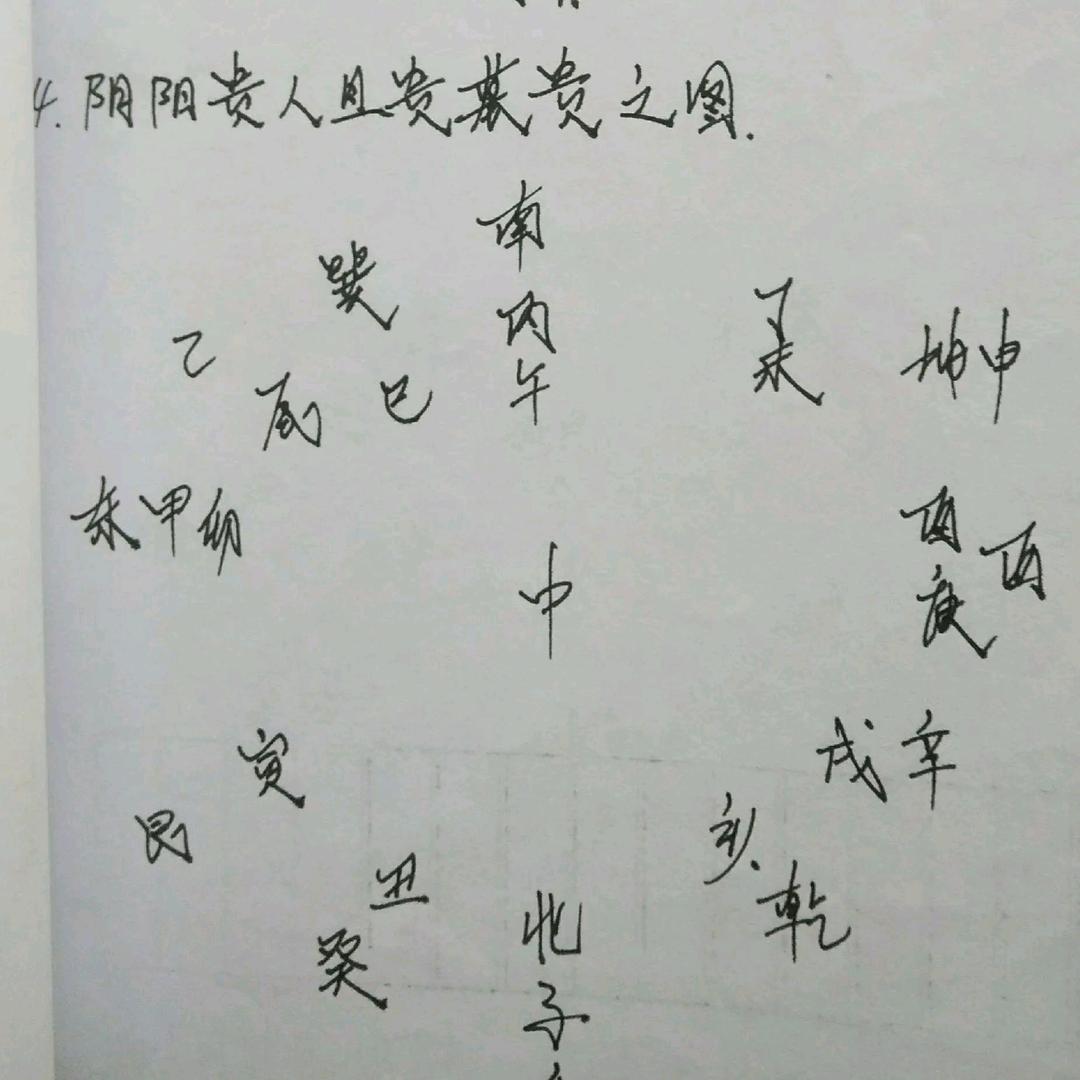 4.阴阳贵人旦贵暮贵之图.
南
巽
丙
丁
乙
午
未
坤申
辰
巳
东甲卯
酉
西
庚
中
寅
戌辛
艮
亥.
丑
乾
癸
北
子